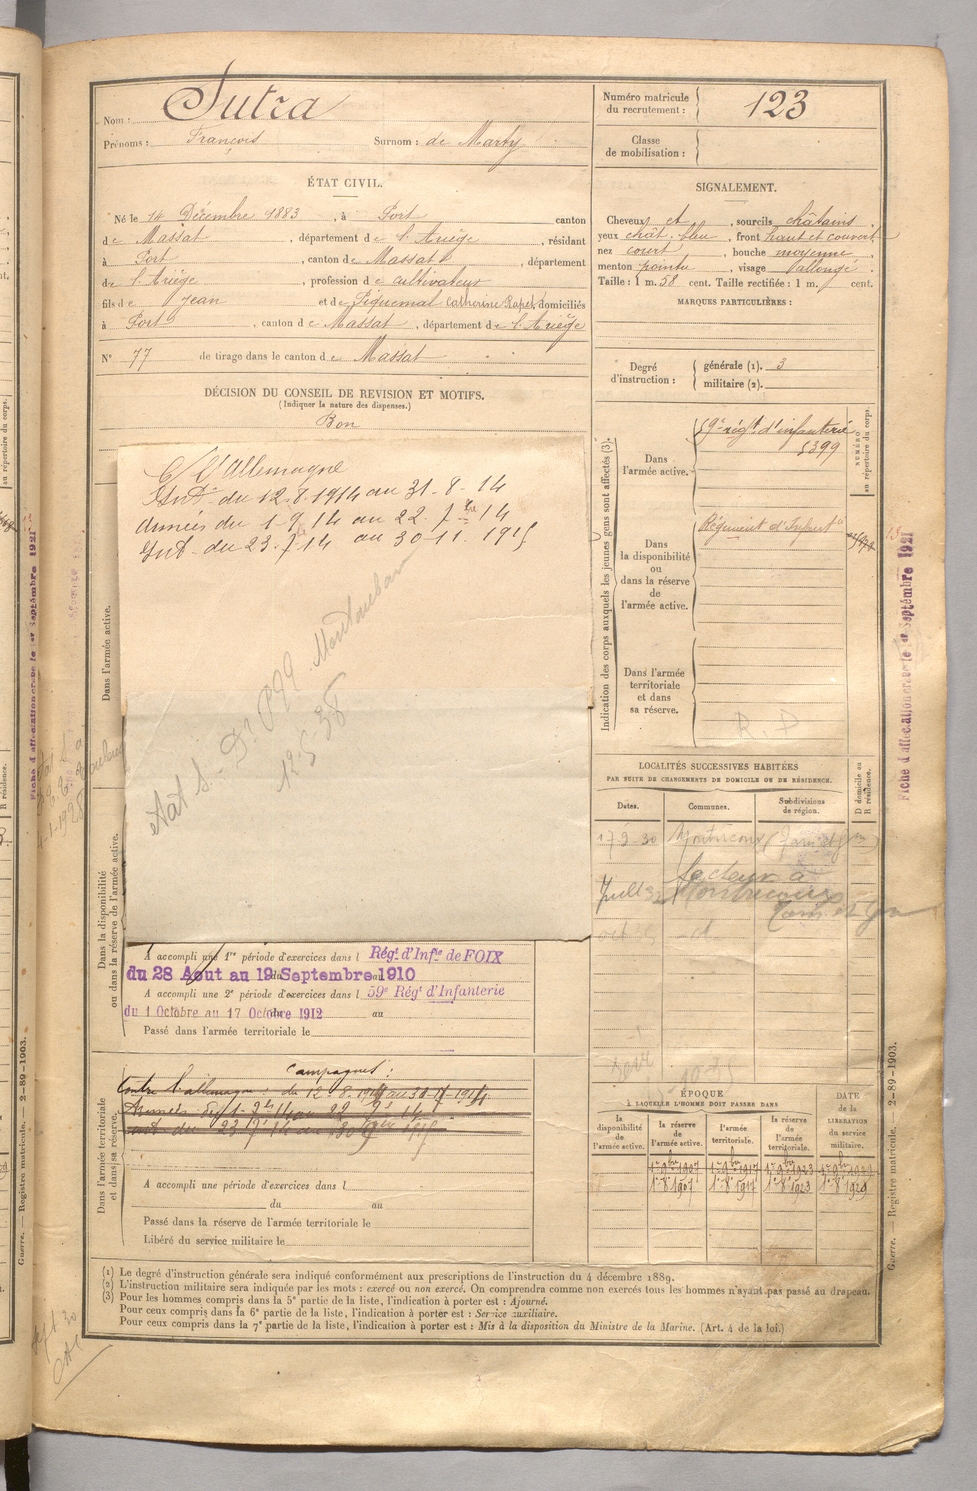 Nom : Sutra
Prénoms : François Surnom : de Marty
ÉTAT CIVIL.
Né le 14 Décembre 1883, à Port canton
de Massat, département de l'Ariège, résidant
à Port, canton de Massat, département
de l'Ariège, profession de cultivateur
fils de Jean et de Piquemal Catherine Rapet, domiciliés
à Port, canton de Massat, département de l'Ariège
N° 77 de tirage dans le canton de Massat
DÉCISION DU CONSEIL DE REVISION ET MOTIFS.
(Indiquer la nature des dispenses.)
Bon
C/ l'Allemagne
Int. du 12.8.1914 au 31.8.14
Armées du 1.9.14 au 22.7bre 14
Int. du 23.7bre 14 au 30.11.1915
Montauban
12-5-38
Dans l'armée active.
Dans la disponibilité
ou dans la réserve de l'armée active.
A accompli une 1re période d'exercices dans l Régt d'Infie de FOIX
du 28 Aout au 19 Septembre 1910
A accompli une 2e période d'exercices dans l 59e Régt d'Infanterie
du 1 Octobre au 17 Octobre 1912 au
Passé dans l'armée territoriale le
Dans l'armée territoriale
et dans sa réserve.
Campagnes :
Contre l'allemagne : du 12.8.1914 au 30.11.1915
A accompli une période d'exercices dans l
du au
Passé dans la réserve de l'armée territoriale le
Libéré du service militaire le
Numéro matricule
du recrutement : 123
Classe
de mobilisation :
SIGNALEMENT.
Cheveux et, sourcils châtains
yeux chât. bleu, front haut et couvert
nez court, bouche moyenne
menton pointu, visage allongé.
Taille : 1 m. 58 cent. Taille rectifiée : 1 m. cent.
MARQUES PARTICULIÈRES :
Degré
d'instruction :
générale (1). 3
militaire (2).
Indication des corps auxquels les jeunes gens sont affectés (3).
NUMÉRO
au répertoire du corps.
Dans
l'armée active.
59e régt d'infanterie
5399
Dans
la disponibilité
ou
dans la réserve
de
l'armée active.
Régiment d'Infant
Dans l'armée
territoriale
et dans
sa réserve.
R. P
LOCALITÉS SUCCESSIVES HABITÉES
PAR SUITE DE CHANGEMENTS DE DOMICILE OU DE RÉSIDENCE.
D domicile ou
R résidence.
Dates. Communes. Subdivisions
de région.
17-9-30
facteur à
Juill 32 Montricoux
Tarn et Gne
ÉPOQUE
À LAQUELLE L'HOMME DOIT PASSER DANS
DATE
de la
LIBÉRATION
du service
militaire.
la
disponibilité
de
l'armée active.
la réserve
de
l'armée active.
l'armée
territoriale.
la réserve
de
l'armée
territoriale.
1r 9bre 1907 1r 9bre 1917 1r 9bre 1923 1r 9bre 1929
1r 8 1907 1r 8 1917 1r 8 1923 1r 8 1929
(1) Le degré d'instruction générale sera indiqué conformément aux prescriptions de l'instruction du 4 décembre 1889.
(2) L'instruction militaire sera indiquée par les mots : exercé ou non exercé. On comprendra comme non exercés tous les hommes n'ayant pas passé au drapeau.
(3) Pour les hommes compris dans la 5e partie de la liste, l'indication à porter est : Ajourné.
Pour ceux compris dans la 6e partie de la liste, l'indication à porter est : Service auxiliaire.
Pour ceux compris dans la 7e partie de la liste, l'indication à porter est : Mis à la disposition du Ministre de la Marine. (Art. 4 de la loi.)
Fiche d'affectation créée le 1er Septembre 1921
Guerre. — Registre matricule. — 2-89-1903.
au répertoire du corps.
R résidence.
Fiche d'affectation créée le 1er Septembre 1921
Guerre. — Registre matricule. — 2-89-1903.